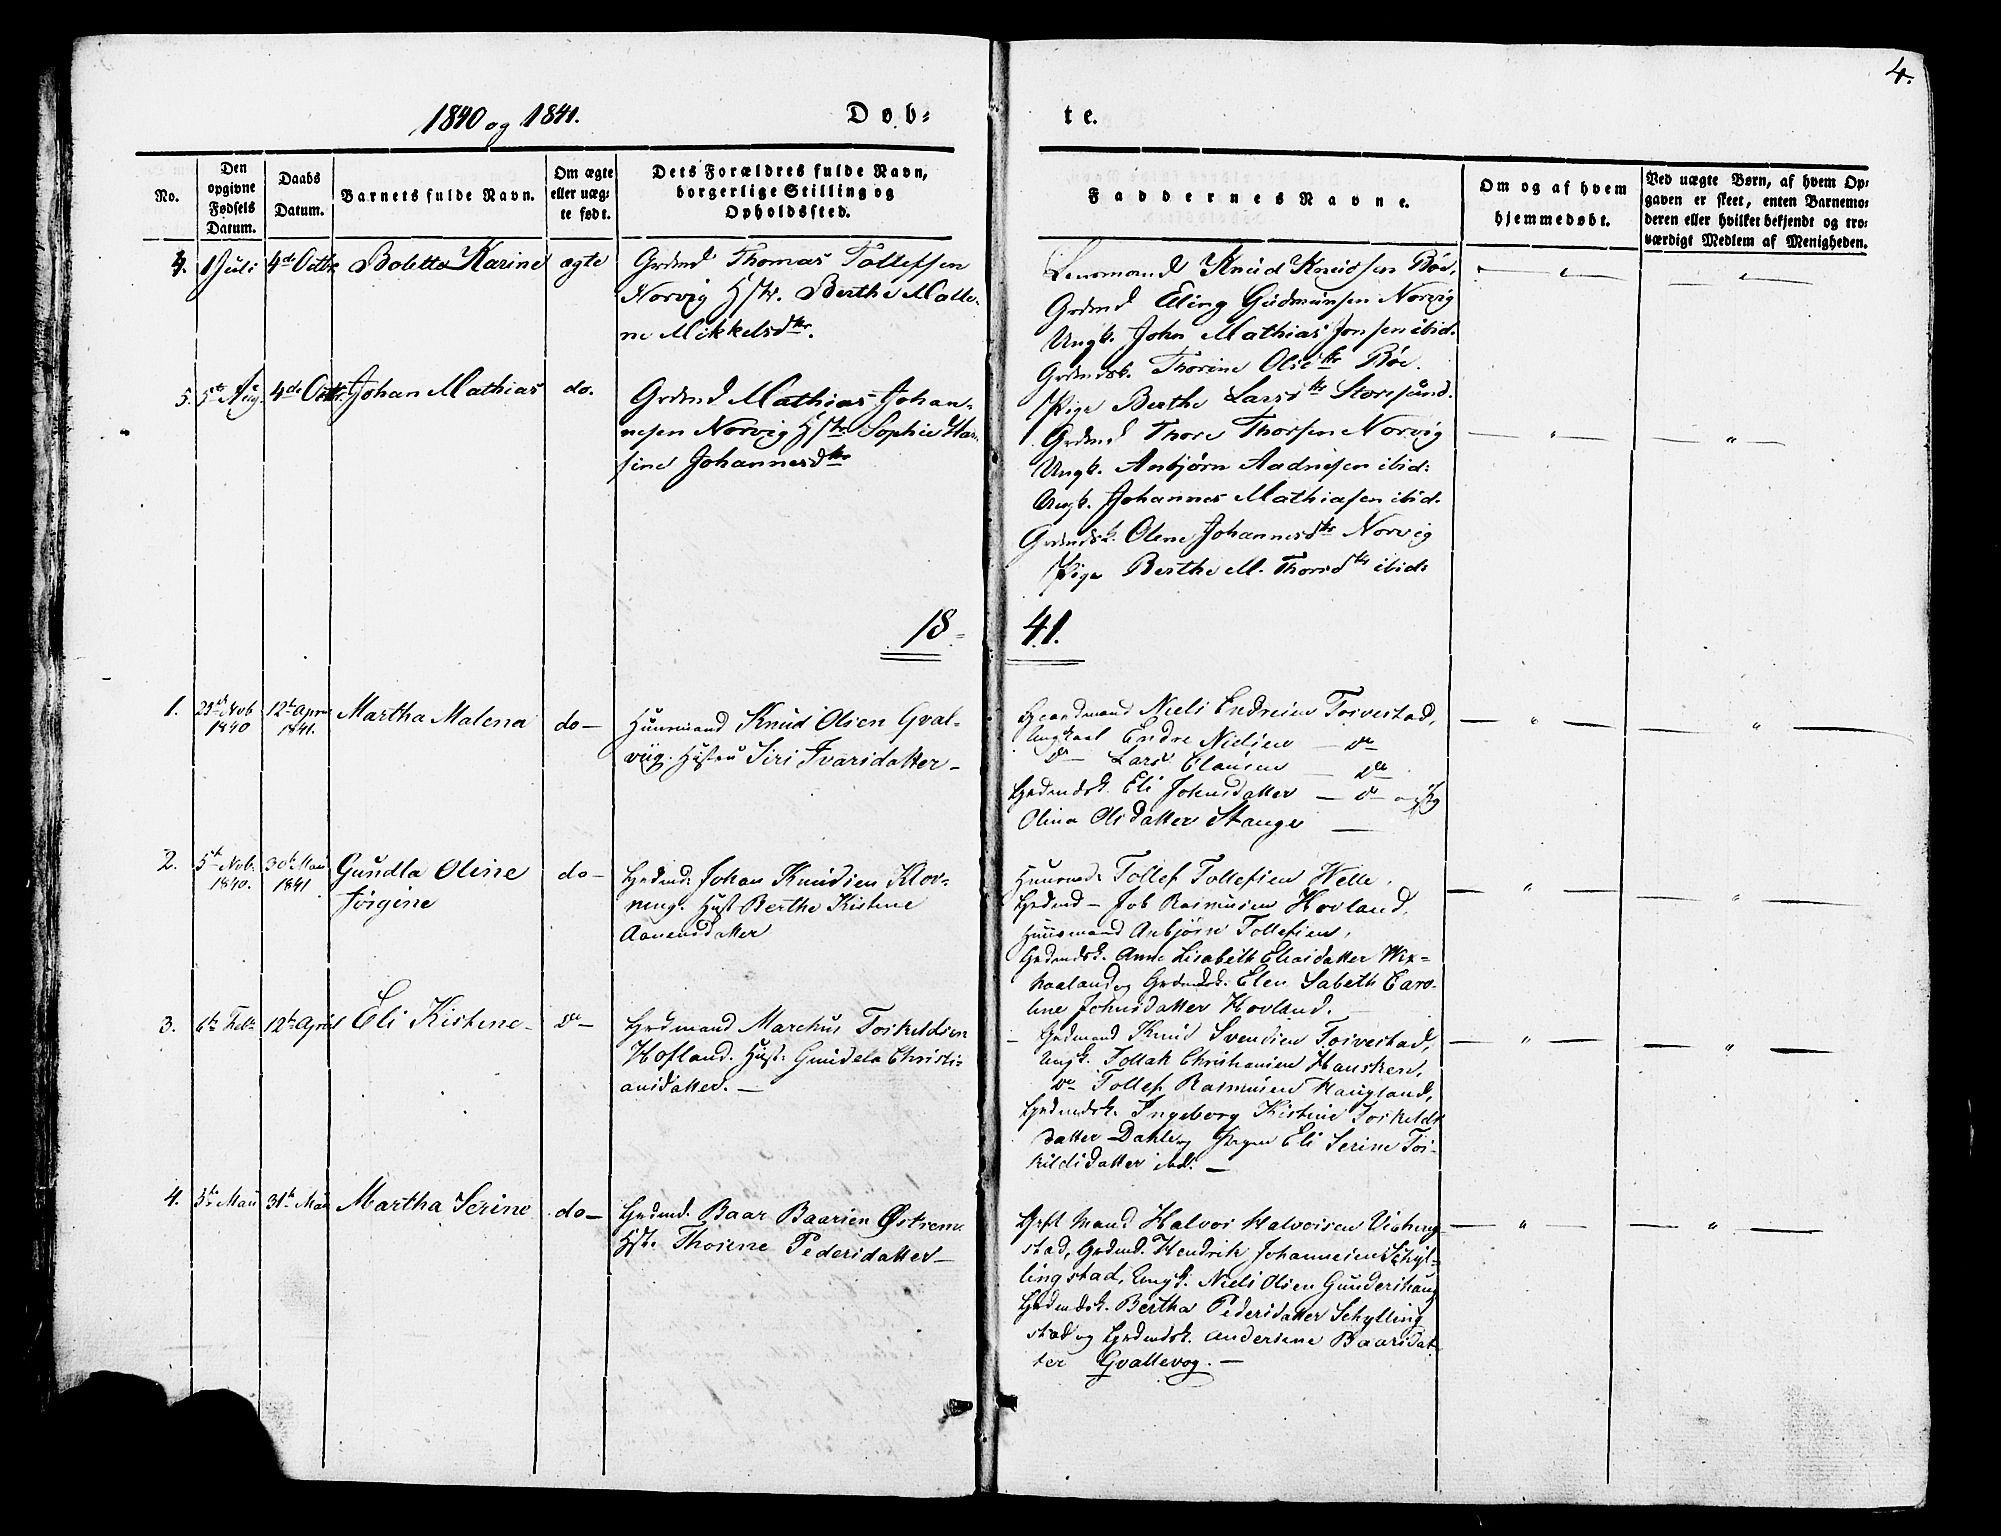 4.
1840 og 1841.
Døb-
te.
No.
Den opgivne Fødsels Datum.
Daabs Datum.
Barnets fulde Navn.
Om ægte eller uægte født.
Dets Forældres fulde Navn,
borgerlige Stilling og
Opholdssted.
Faddernes Navne.
Om og af hvem
hjemmedøbt.
Ved uægte Børn, af hvem Op-
gaven er skeet, enten Barnemo-
deren eller hvilket bekjendt og tro-
værdigt Medlem af Menigheden.
4. 1 Juli 4de Octbr Bolette Karine ægte
Grdmd Thomas Tollefsen
Norvig Hstr. Berthe Malle-
ne Mikkelsdtr.
Lensmand Knud Knudsen Bøe,
Grdmd Eling Gudmunsen Norvig
Ungk. John Mathias Jonsen ibid.
Grdmdsk. Thorine Olsdtr Bøe.
Pige Berthe Larsdtr Storesund.
5. 5te Aug. 4de Octbr. Johan Mathias do.
Grdmd Mathias Johan-
nesen Norvig Hstr Sophie
sine Johannesdtr
Grdmd Thore Thorsen Norvig
Ungk. Anbjørn Aadnesen ibid:
Ungk. Johannes Mathiasen ibid.
Grdmdsk. Olene Johannesdtr Norvig
Pige Berthe M. Thorsdtr ibid:
18-
41.
1. Nov 1840 12te April 1841. Martha Malena do -
Huusmand Knud Olsen Gval-
viig. Hustru Siri Ivarsdatter -
Gaardmand Niels Endresen Toivestad,
Ungkarl Endre Nielsen - do
do - Lars Clausen - do
Grdmdsk. Eli Johnsdatter - do -
Olina Olsdatter Stange -
2. 5te Novb. 1840. 30te Mai 1841 Gundla Oline
Jørgine
do -
Grdmd: Johan Knudsen Klov-
ning. Hust Berthe Kistine
Aanensdatter
Huusmd: Tollef Tollefsen Welle,
Grdmd - Job Rasmusen Hovland,
Huusmand Anbjørn Tollefsen,
Grdmdsk. Anne Lisabeth Eliasdatter Wix-
haaland og Grdmdsk. Elen Sabeth Caro-
line Johnsdatter Hovland. -
3. 6te Feb. 12te April Eli Kistine - do -
Grdmand Marckus Torkeldsen
Hofland. Hust. Gundela Christi-
ansdatter. -
Grdmand Knud Svendsen Toivestad,
Ungk. Tollak Christiansen Hausken,
do Tollef Rasmusen Haugland,
Grdmdsk. Ingeborg Kistine Torkelds
datter Dahle og Pigen Eli Serine Tor-
kildsdatter ibid. -
4. 3te Mai 31te Mai Martha Serine do -
Grdmd. Baar Baarsen Østrem.
Hst. Thorine Pedersdatter -
Mand Halvor Halvorsen
stad, Grdmd. Hendrik Johannesen Schyl-
lingstad, Ungk. Niels Olsen Gundershaug
Grdmdsk. Bertha Pedersdatter Schylling
stad og Grdmdsk. Andersine Baarsdat-
ter Gvallevog. -